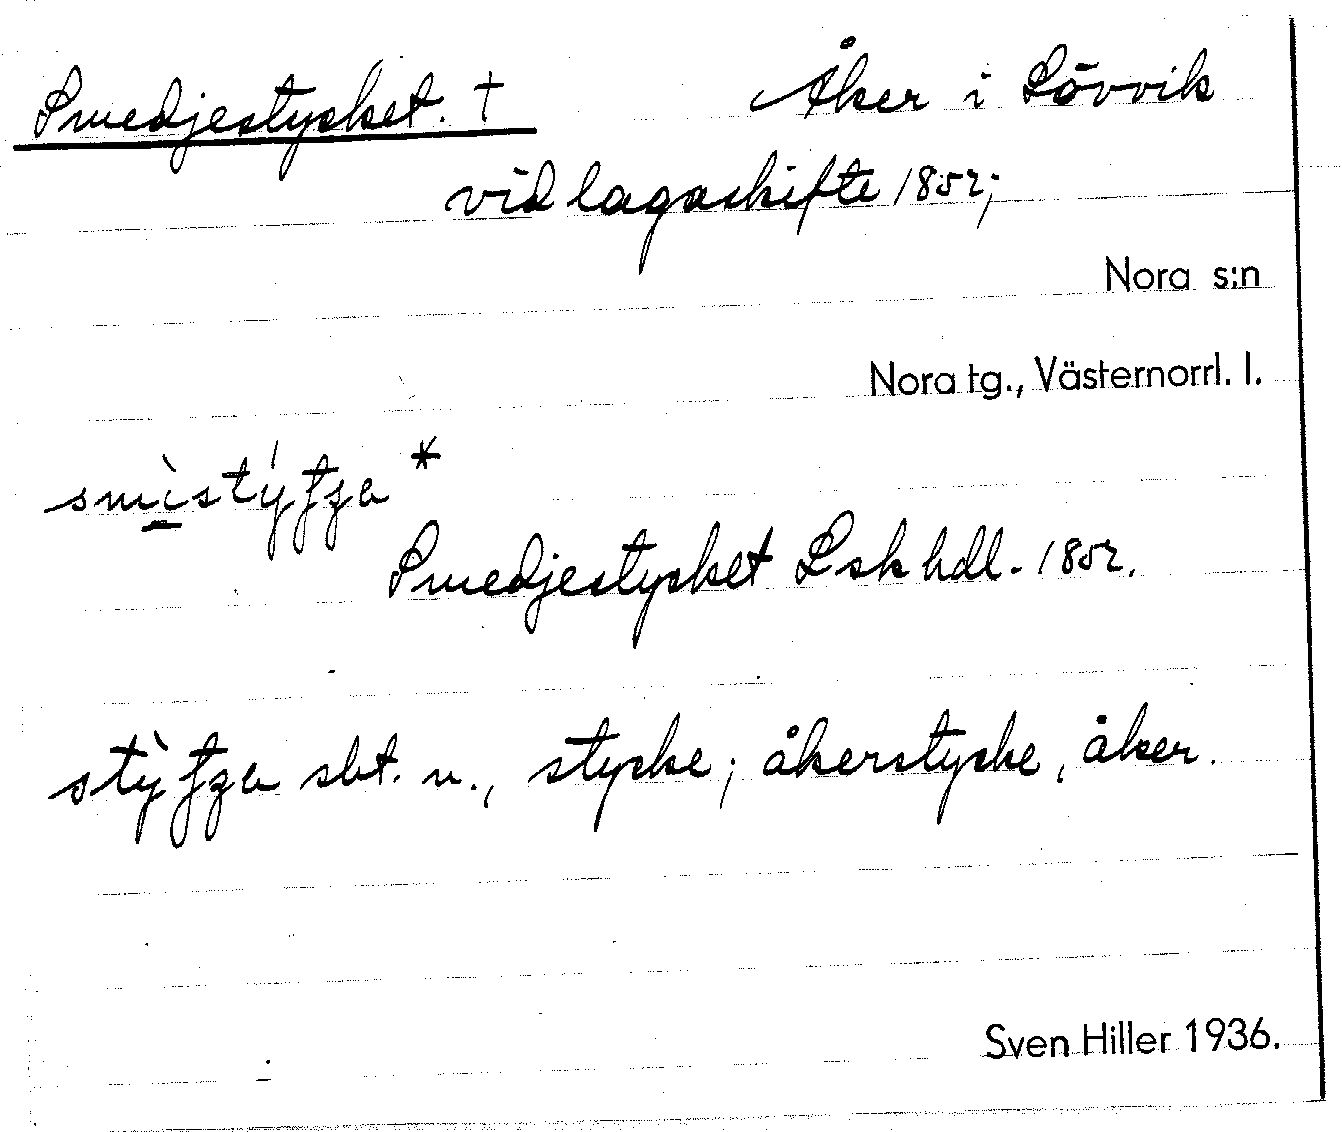 Smedjestycket. † Åker i Lövvik
vid lagaskifte 1852;
Nora s:n
Nora tg., Västernorrl. l.
Smedjestycket Lsk hdl. 1852.
sbt. n., stycke; åkerstycke, åker.
Sven Hiller 1936.